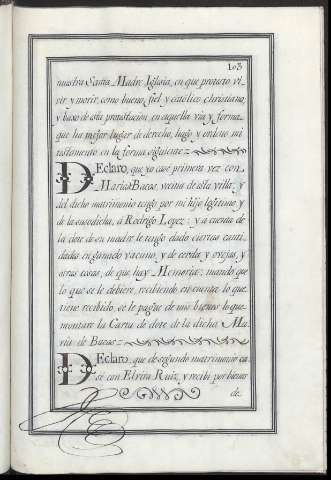 103
nuestra Santa Madre Iglesia, en que protesto vi-
vir y morir, como bueno, fiel y catolico christiano,
y baxo de esta protestacion, en aquella via y forma,
que ha mejor lugar de derecho, hago y ordeno mi
testamento en la forma siguiente
DEclaro, que yo casè primera vez con
Maria de Bacas, vecina de esta villa, y
del dicho matrimonio tengo por mi hijo legitimo, y
de la susodicha, à Rodrigo Lopez: y à cuenta de
la dote de su madre le tengo dado ciertas canti-
dades en ganado vacuno, y de cerda, y ovejas, y
otras cosas, de que hay Memoria: mando que
lo que se le debiere, recibiendo en cuenta lo que
tiene recibido, se le pague de mis bienes lo que
montare la Carta de dote de la dicha Ma-
ria de Bacas
DEclaro, que de segundo matrimonio ca-
sè con Elvira Ruiz, y recibì por bienes
de